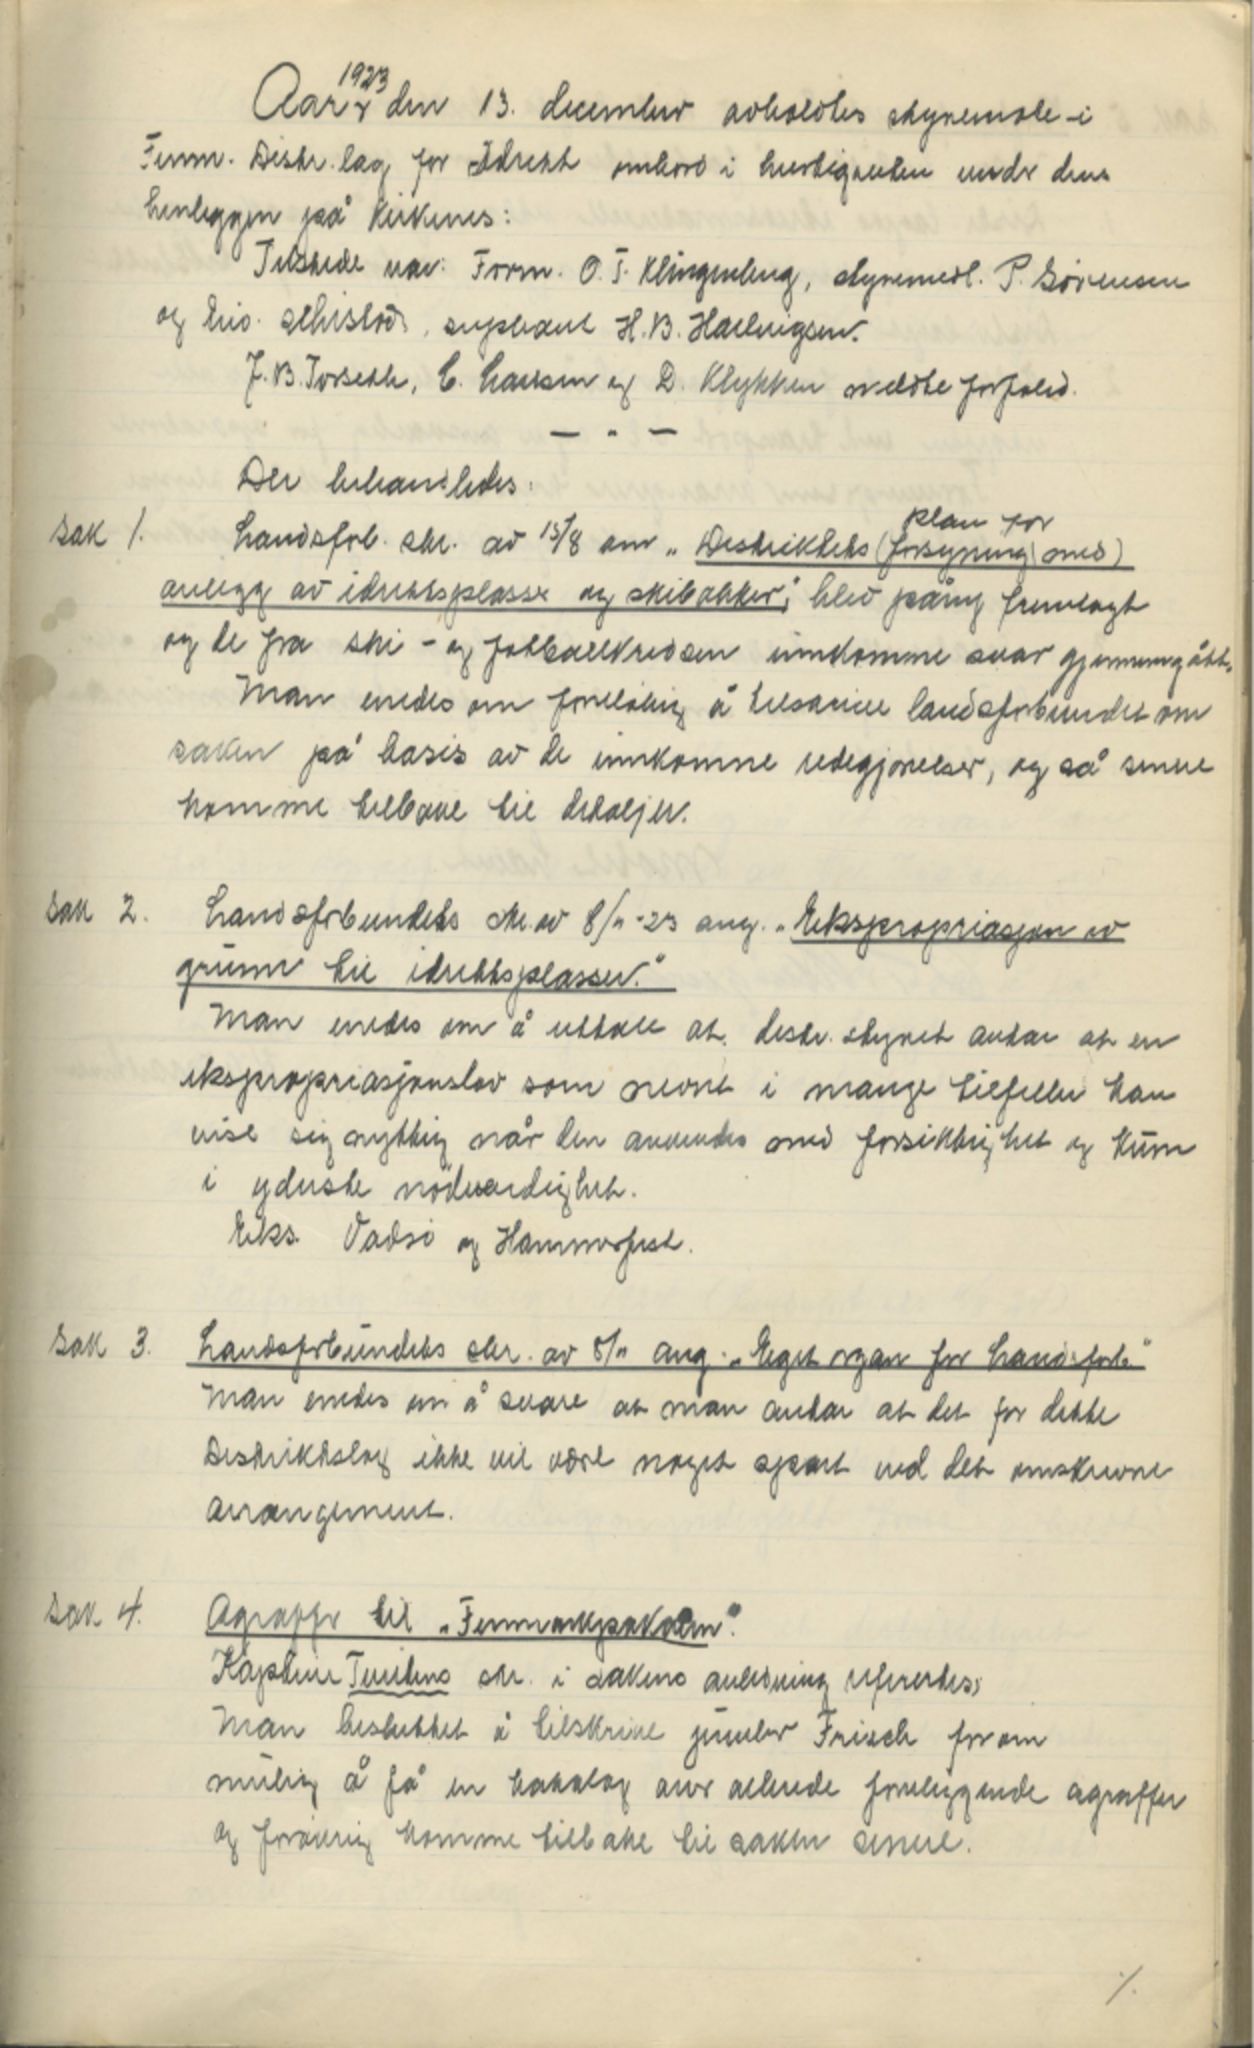 1923
Aar den 13. december avholdtes styremøte i
Finnm. Distr. lag for Idrett ombord i hurtigruten under dens
henliggen på Kirkenes:
Tilstede var: Form. O. T. Klingenberg, styremedl. P. Sørensen
og suppleant H. B. Hallvigsen.
J. B. Torseth, C. Larsen og D. Klykken meldte forfald.
— " —
Der behandledes:
plan for
Sak 1. Landsforb. skr. av 15/8 om „Distriktets (forsyning med)
anlegg av idrettsplasser og skibakker", blev påny fremlagt
og de fra ski- og fotballkredsen innkomne svar gjennemgått.
Man enedes om foreløbig å tilskrive landsforbundet om
saken på basis av de innkomne redegjørelser, og så senere
komme tilbake til detaljer.
Sak 2. Landsforbundets skr. av 8/11-23 ang. „Ekspropriasjon av
grunn til idrettsplasser."
Man enedes om å uttale at distr. styret antar at en
ekspropriasjonslov som nevnt i mange tilfeller kan
vise sig nyttig når den anvendes med forsiktighet og kun
i yderste nödvendighet.
Eks. Vadsø og Hammerfest.
Sak 3. Landsforbundets skr. av 8/11 ang. „Eget organ for Landsforb"
Man enedes om å svare at man antar at det for dette
Distriktslag ikke vil være noget spart ved det omskrevne
arrangement.
Sak 4. Agraffer til „Finnmarkspokalen".
Kaptein skr. i sakens anledning refereredes;
Man besluttet å tilskrive juveler Frisch for om
mulig å få en katalog over allerede foreliggende agraffer
og forøvrig komme tilbake til saken senere.
./.